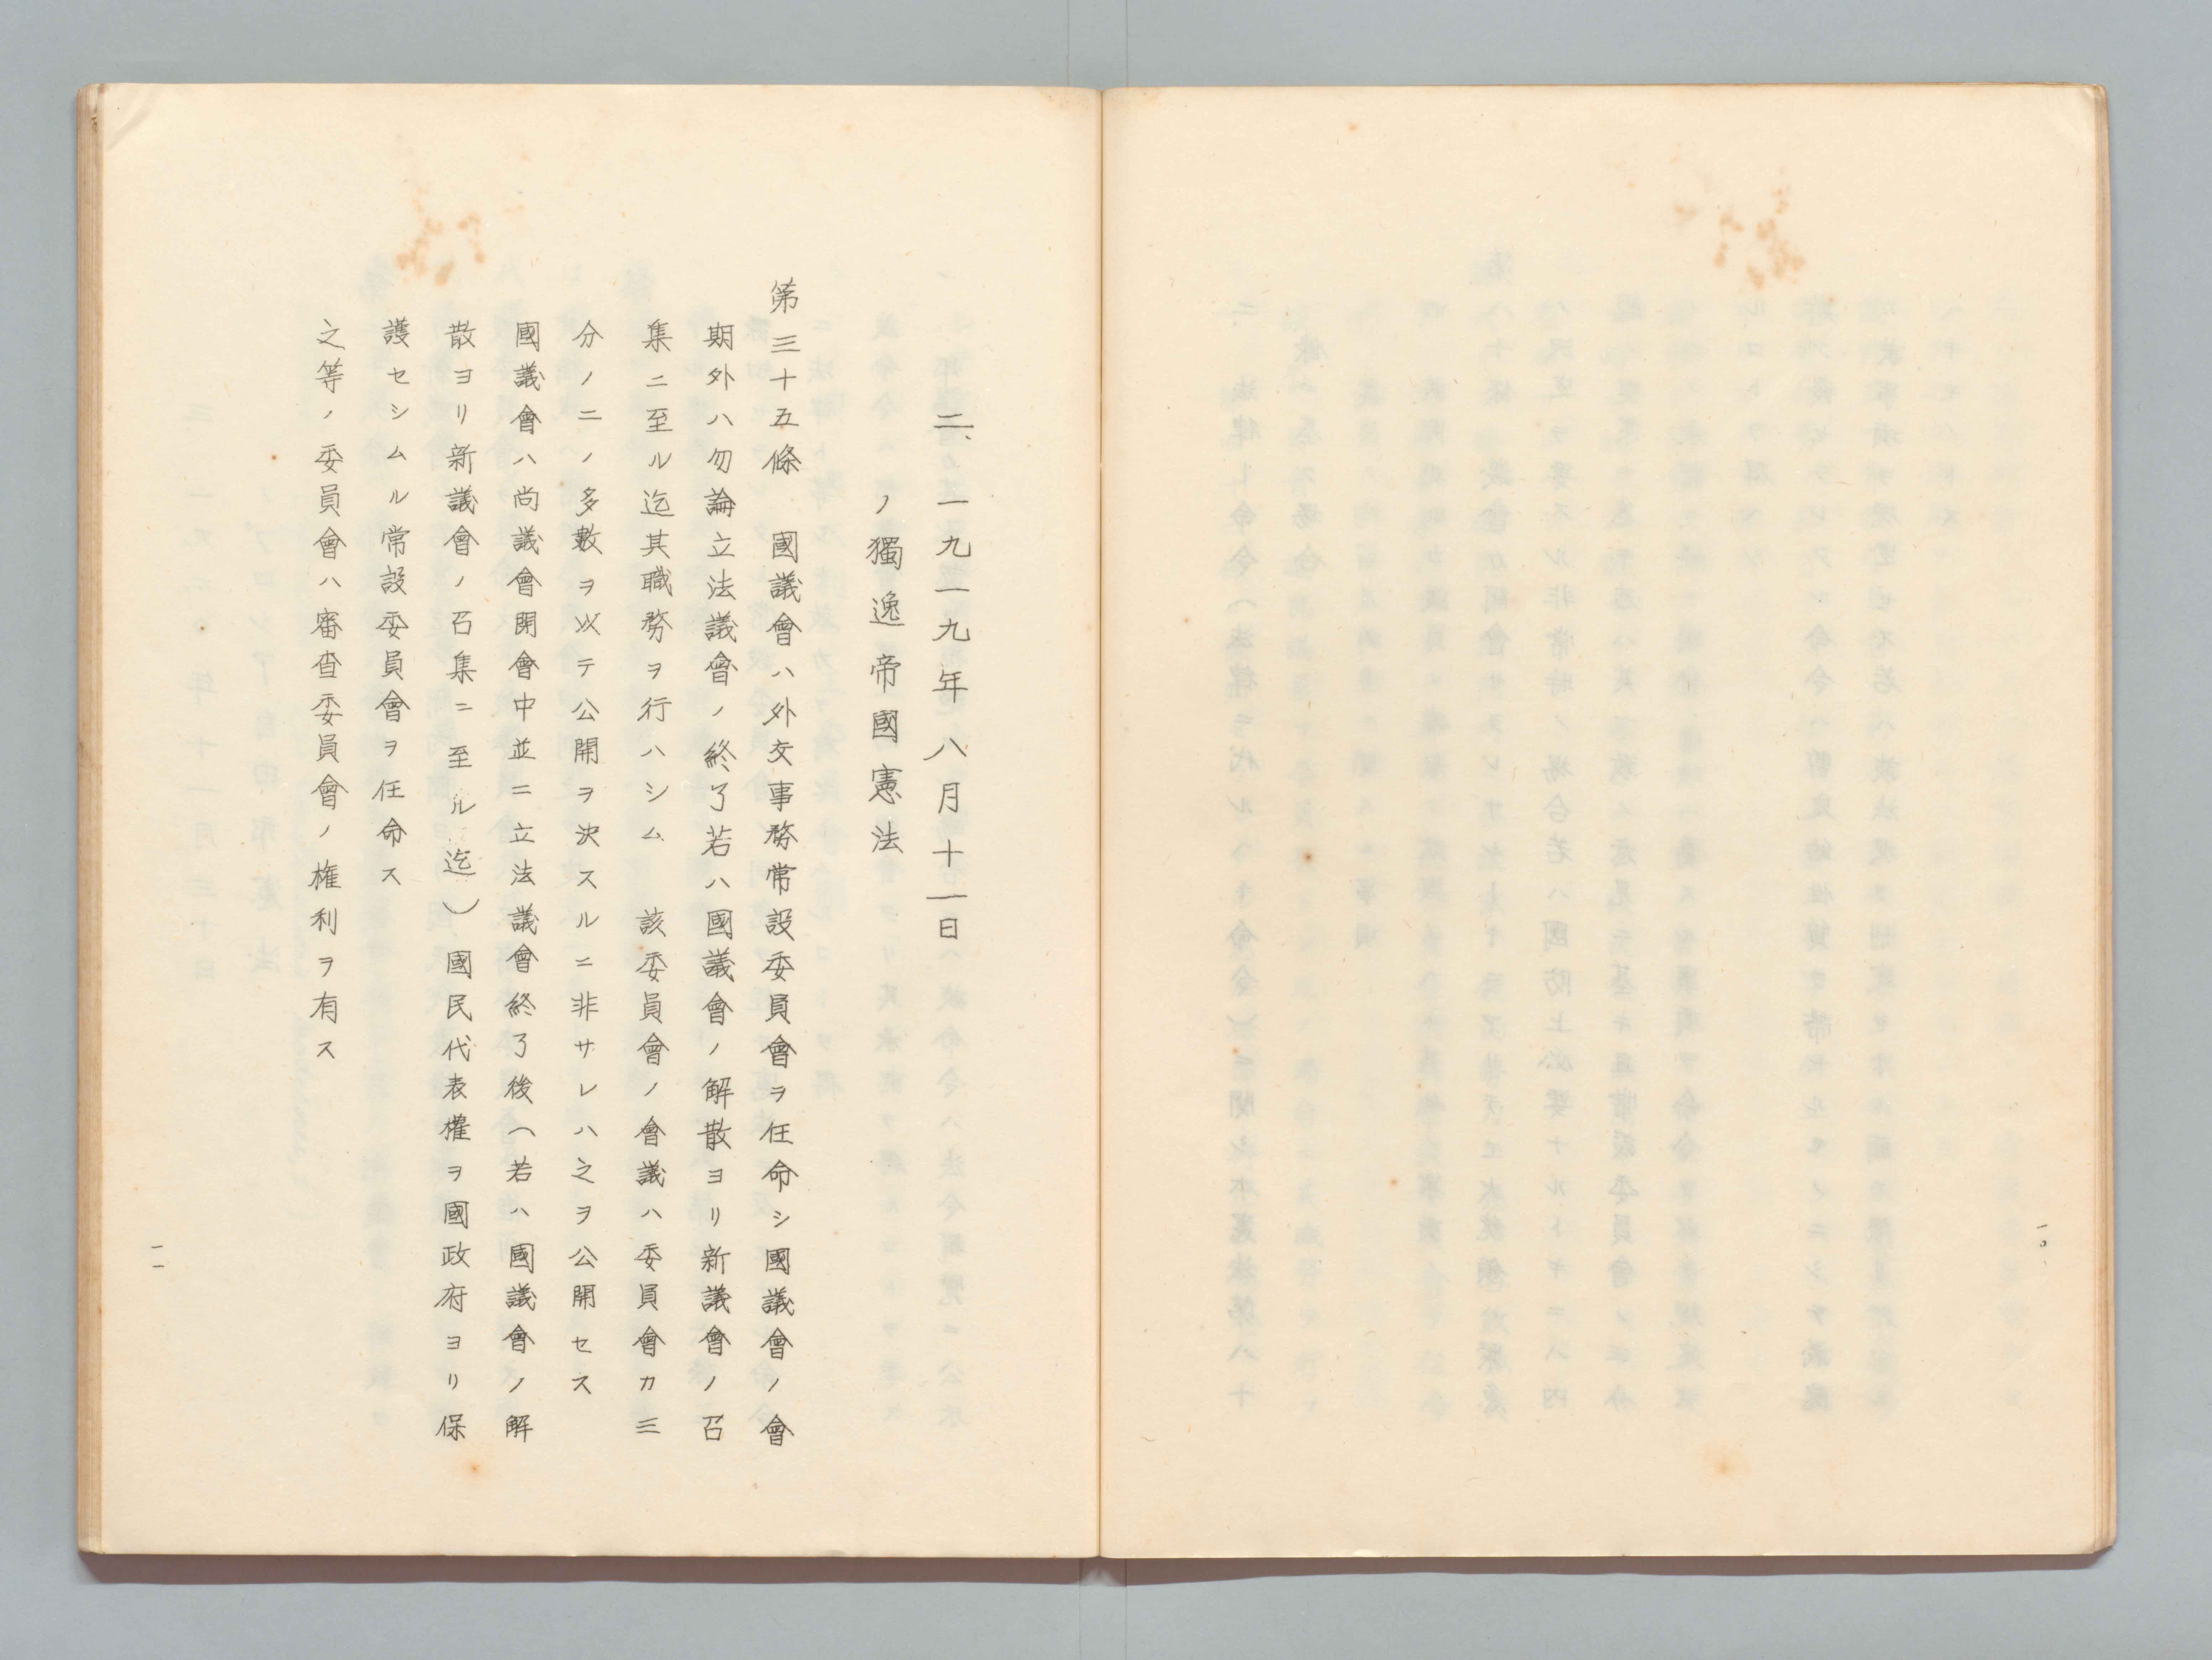 一〇
二、一九一九年八月十一日
ノ獨逸帝國憲法
第三十五條　國議會ハ外交事務常設委員會ヲ任命シ國議會ノ會
期外ハ勿論立法議會ノ終了若ハ國議會ノ解散ヨリ新議會ノ召
集ニ至ル迄其職務ヲ行ハシム　該委員會ノ會議ハ委員會カ三
分ノ二ノ多數ヲ以テ公開ヲ決スルニ非サレハ之ヲ公開セス
國議會ハ尚議會開會中並ニ立法議會終了後（若ハ國議會ノ解
散ヨリ新議會ノ召集ニ至ル迄）國民代表權ヲ國政府ヨリ保
護セシムル常設委員會ヲ任命ス
之等ノ委員會ハ審査委員會ノ権利ヲ有ス
一一